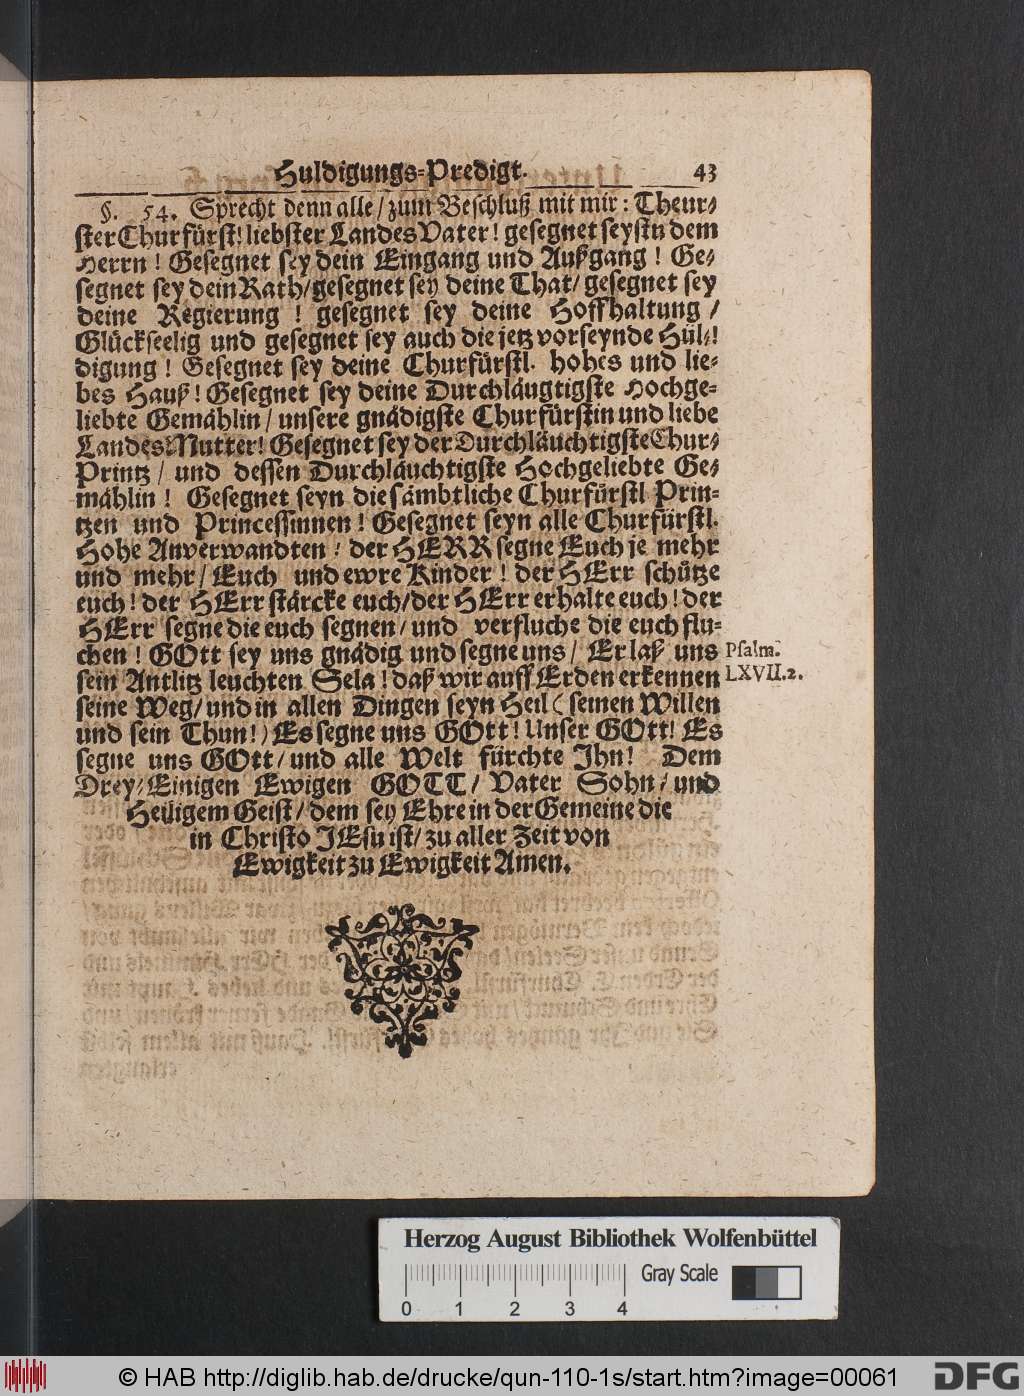 Huldigungs-Predigt. 43
§. 54. Sprecht denn alle / zum Beschluß mit mir: Theur-
ster Churfürst! liebster LandesVater! gesegnet seystu dem
Herrn! Gesegnet sey dein Eingang und Außgang! Ge-
segnet sey dein Rath/ gesegnet sey deine That/ gesegnet sey
deine Regierung! gesegnet sey deine Hoffhaltung /
Glückseelig und gesegnet sey auch die jetz vorseynde Hül-!
digung! Gesegnet sey deine Churfürstl. hohes und lie-
bes Hauß! Gesegnet sey deine Durchläugtigste Hochge-
liebte Gemählin/ unsere gnädigste Churfürstin und liebe
Landes-Mutter! Gesegnet sey der Durchläuchtigste Chur-
Printz / und dessen Durchläuchtigste Hochgeliebte Ge-
mählin! Gesegnet seyn die sämbtliche Churfürstl Prin-
tzen und Princessinnen! Gesegnet seyn alle Churfürstl.
Hohe Anverwandten! der HERR segne Euch je mehr
und mehr/ Euch und ewre Kinder! der HErr schütze
euch! der HErr stärcke euch/ der HErr erhalte euch! der
HErr segne die euch segnen/ und verfluche die euch flu-
chen! GOtt sey uns gnädig und segne uns/ Er laß uns
sein Antlitz leuchten Sela! daß wir auff Erden erkennen
seine Weg/ und in allen Dingen seyn Heil (seinen Willen
und sein Thun!) Es segne uns GOtt! Unser GOtt! Es
segne uns GOtt/ und alle Welt fürchte Ihn! Dem
Drey-Einigen Ewigen GOTT/ Vater Sohn/ und
Heiligem Geist/ dem sey Ehre in der Gemeine die
in Christo JEsu ist/ zu aller Zeit von
Ewigkeit zu Ewigkeit Amen.
Psalm.
LXVII.2.
Herzog August Bibliothek Wolfenbüttel
Gray Scale
0 1 2 3 4
© HAB http://diglib.hab.de/drucke/qun-110-1s/start.htm?image=00061
DFG